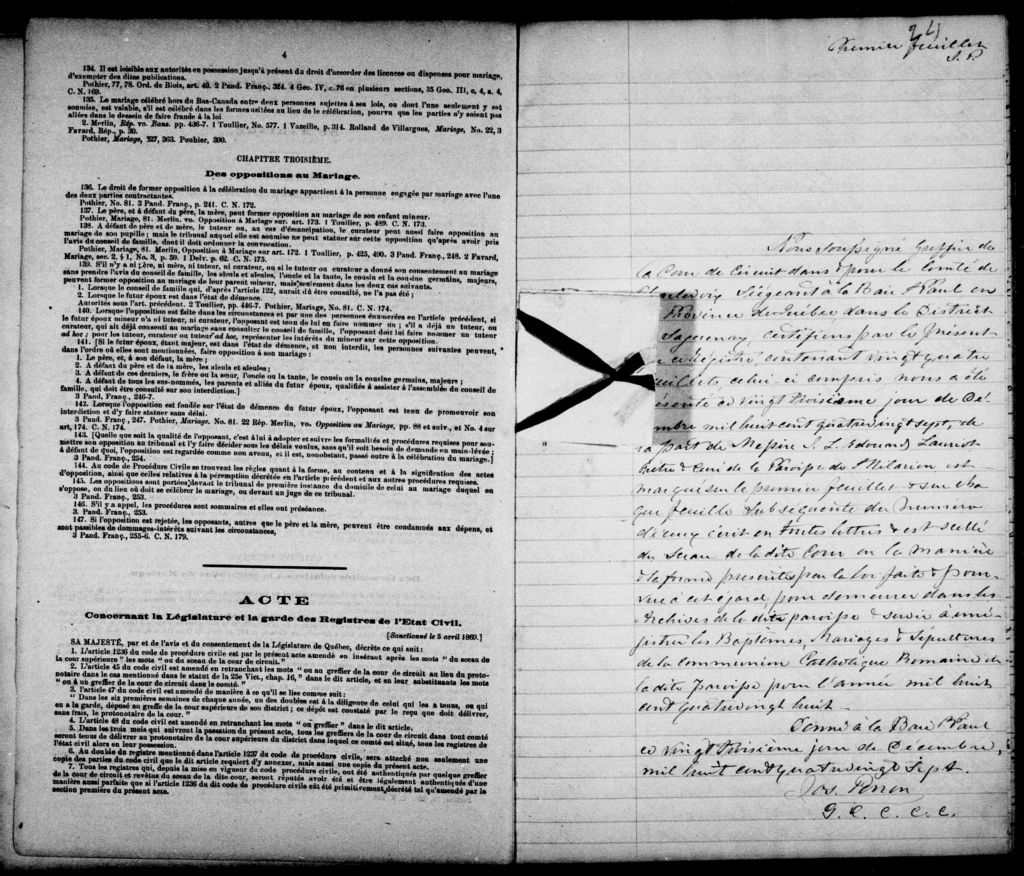 4
134. Il est loisible aux autorités en possession jusqu'à présent du droit d'accorder des licences ou dispenses pour mariage,
d'exempter des dites publications.
Pothier, 77, 78. Ord. de Blois, art. 40. 2 Pand. Franç., 324. 4 Geo. IV, c. 76 en plusieurs sections, 35 Geo. III, c, 4, s. 4,
C. N. 169.
135. Le mariage célébré hors du Bas-Canada entre deux personnes sujettes à ses lois, ou dont l'une seulement y est
soumise, est valable, s'il est célébré dans les formes usitées au lieu de la célébration, pourvu que les parties n'y soient pas
allées dans le dessein de faire fraude à la loi.
2. Merlin, Rép. vo. Banc. pp. 436-7. 1 Toullier, No. 577. 1 Vazeille, p. 314. Rolland de Villargues, Mariage, No. 22, 3
Favard, Rép., p. 30.
Pothier, Mariage, 227, 363. Pouhier, 390.
CHAPITRE TROISIÈME.
Des oppositions au Mariage.
136. Le droit de former opposition à la célébration du mariage appartient à la personne engagée par mariage avec l'une
des deux parties contractantes.
Pothier, No. 81. 3 Pand. Franç., p. 241. C. N. 172.
137. Le père, et à défaut du père, la mère, peut former opposition au mariage de son enfant mineur.
Pothier, Mariage, 81. Merlin, vo. Opposition à Mariage sur. art. 173. 1 Toullier, p. 489. C. N. 173.
138. A défaut de père et de mère, le tuteur ou, au cas d'émancipation, le curateur peut aussi faire opposition au
mariage de son pupille; mais le tribunal auquel elle est soumise ne peut statuer sur cette opposition qu'après avoir pris
l'avis du conseil de famille, dont il doit ordonner la convocation.
Pothier, Mariage, 81. Merlin, Opposition à Mariage sur art. 172. 1 Toullier, p. 425, 490. 3 Pand. Franç., 248. 2 Favard,
Mariage, sec. 2, § 1, No. 3, p. 59. 1 Delv. p. 62. C. N. 175.
139. S'il n'y a ni père, ni mère, ni tuteur, ni curateur, ou si le tuteur ou curateur a donné son consentement au mariage
sans prendre l'avis du conseil de famille, les aïeuls et aïeules, l'oncle et la tante, le cousin et la cousine germains, majeurs,
peuvent former opposition au mariage de leur parent mineur, mais seulement dans les deux cas suivants.
1. Lorsque le conseil de famille qui, d'après l'article 122, aurait dû être consulté, ne l'a pas été;
2. Lorsque le futur époux est dans l'état de démence.
Autorités sous l'art. précédent. 2 Toullier, pp. 446-7. Pothier, Mariage, No. 81. C. N. 174.
140. Lorsque l'opposition est faite dans les circonstances et par une des personnes énumérées en l'article précédent, si
le futur époux mineur n'a ni tuteur, ni curateur, l'opposant est tenu de lui en faire nommer un; s'il a déjà un tuteur, ou
curateur, qui ait déjà consenti au mariage sans consulter le conseil de famille, l'opposant doit lui faire nommer un tuteur
ad hoc; pour les tuteur, curateur ou tuteur ad hoc, représenter les intérêts du mineur sur cette opposition.
141. [Si le futur époux, étant majeur, est dans l'état de démence, et non interdit, les personnes suivantes peuvent,
dans l'ordre où elles sont mentionnées, faire opposition à son mariage:
1. Le père, et, à son défaut, la mère;
2. A défaut du père et de la mère, les aïeuls et aïeules;
3. A défaut de ces derniers, le frère ou la sœur, l'oncle ou la tante, le cousin ou la cousine germains, majeurs;
4. A défaut de tous les sus-nommés, les parents et alliés du futur époux, qualifiés à assister à l'assemblée du conseil de
famille, qui doit être consulté sur son interdiction.]
3 Pand. Franç., 246-7.
142. Lorsque l'opposition est fondée sur l'état de démence du futur époux, l'opposant est tenu de promouvoir son
interdiction et d'y faire statuer sans délai.
3 Pand. Franç., 247. Pothier, Mariage. No. 81. 22 Rép. Merlin, vo. Opposition au Mariage, pp. 88 et suiv., et No. 4 sur
art, 174. C. N. 174.
143. [Quelle que soit la qualité de l'opposant, c'est à lui à adopter et suivre les formalités et procédures requises pour soumettre son opposition au tribunal et l'y faire décider dans les délais voulus, sans qu'il soit besoin de demande en main-lévée;
à défaut de quoi, l'opposition est regardée comme non aveue, et il est, nonobstant, passé outre à la célébration du mariage.]
3 Pand. Franç., 254.
144. Au code de Procédure Civile se trouvent les règles quant à la forme, au contenu et à la signification des actes
d'opposition, ainsi que celles relatives à la péremption décrétée en l'article précédent et aux autres procédures requises.
145. Les oppositions sont portées devant le tribunal de première instance du domicile de celui au mariage duquel on
s'oppose, ou du lieu où doit se célébrer le mariage, ou devant un juge de ce tribunal.
3 Pand. Franç., 253.
146. S'il y a appel, les procédures sont sommaires et elles ont préséance.
3. Pand. Franç., 253.
147. Si l'opposition est rejetée, les opposants, autres que le père et la mère, peuvent être condamnés aux dépens, et
sont passibles de dommages-intérêts suivant les circonstances,
3 Pand. Franç., 255-6. C. N. 179.
ACTE
Concernant la Législature et la garde des Registres de l'Etat Civil.
[Sanctionné le 5 avril 1869.]
SA MAJESTÉ, par et de l'avis et du consentement de la Législature de Québec, décrète ce qui suit:
1. L'article 1236 du code de procédure civile est par le présent acte amendé en insérant après les mots "du sceau de
la cour supérieure" les mots "ou du sceau de la cour de circuit."
2. L'article 45 du code civil est amendé en retranchant les mots "ou au greffier de la cour de circuit au lieu du protonotaire dans le cas mentionné dans le statut de la 25e Vict., chap. 16," dans le dit article, et en leur substituants les mots
"ou à un greffier de la cour de circuit dans le comté."
3. l'article 47 du code civil est amendé de manière à ce qu'il se lise comme suit:
"Dans les six premières semaines de chaque année, un des doubles est à la diligence de celui qui les a tenus, ou qui
en a la garde, déposé au greffe de la cour supérieure de son district; ce dépôt est constaté par le reçu que doit délivrer,
sans frais, le protonotaire de la cour."
4. L'article 48 du code civil est amendé en retranchant les mots "ou greffier" dans le dit article.
5. Dans les trois mois qui suivront la passation du présent acte, tous les greffiers de la cour de circuit dans tout comté
seront tenus de délivrer au protonotaire de la cour supérieure du district dans lequel ce comté est situé, tous les registres de
l'état civil alors en leur possession.
6. Au double du registre mentionné dans l'article 1237 du code de procédure civile, sera attaché non seulement une
copie des parties du code civil que le dit article requiert d'y annexer, mais aussi une copie du présent acte.
7. Tous les registres qui, depuis la mise en vigueur du code procédure civile, ont été authentiqués par quelque greffier
de la cour de circuit et revêtus du sceau de la dite cour, seront réputés avoir été et être légalement authentiqués d'une
manière aussi parfaite que si l'article 1236 du dit code de procédure civile eût été primitivement décrété tel qu'amendé par la
section première du présent acte.
24
Premier feuillet
J. P.
Nous Soussigné Greffier de
la Cour de Circuit dans & pour le Comté de
Charlevoix Siégeant à la Baie St Paul en
Province de Québec dans le District
Saguenay, certifions par le présent
ce régistre contenant vingt quatre
feuillets, celui-ci compris, nous a été
présenté ce vingt troisième jour de Décembre mil huit cent quatrevingt sept, de
la part de Messire E L. Edouard Lauriot
Prêtre & Curé de la Paroisse de St Hilarion est
marqué sur le premier feuillet & sur chaque feuille subséquente du numéro
d'écrit en toutes lettres & est scellé
du Sceau de la dite Cour en la manière
& la forme prescrites par la loi faite & pourvue à cet égard, pour demeurer dans les
Archives de la dite paroisse & servir à enrégistrer les Baptêmes, Mariages & Sépultures
de la Communion Catholique Romaine de
la dite Paroisse pour l'année mil huit
cent quatrevingt huit.
Donné à la Baie St Paul
ce vingt troisième jour de Décembre,
mil huit cent quatrevingt Sept.
Jos. Perron
G. C. C. C. C.